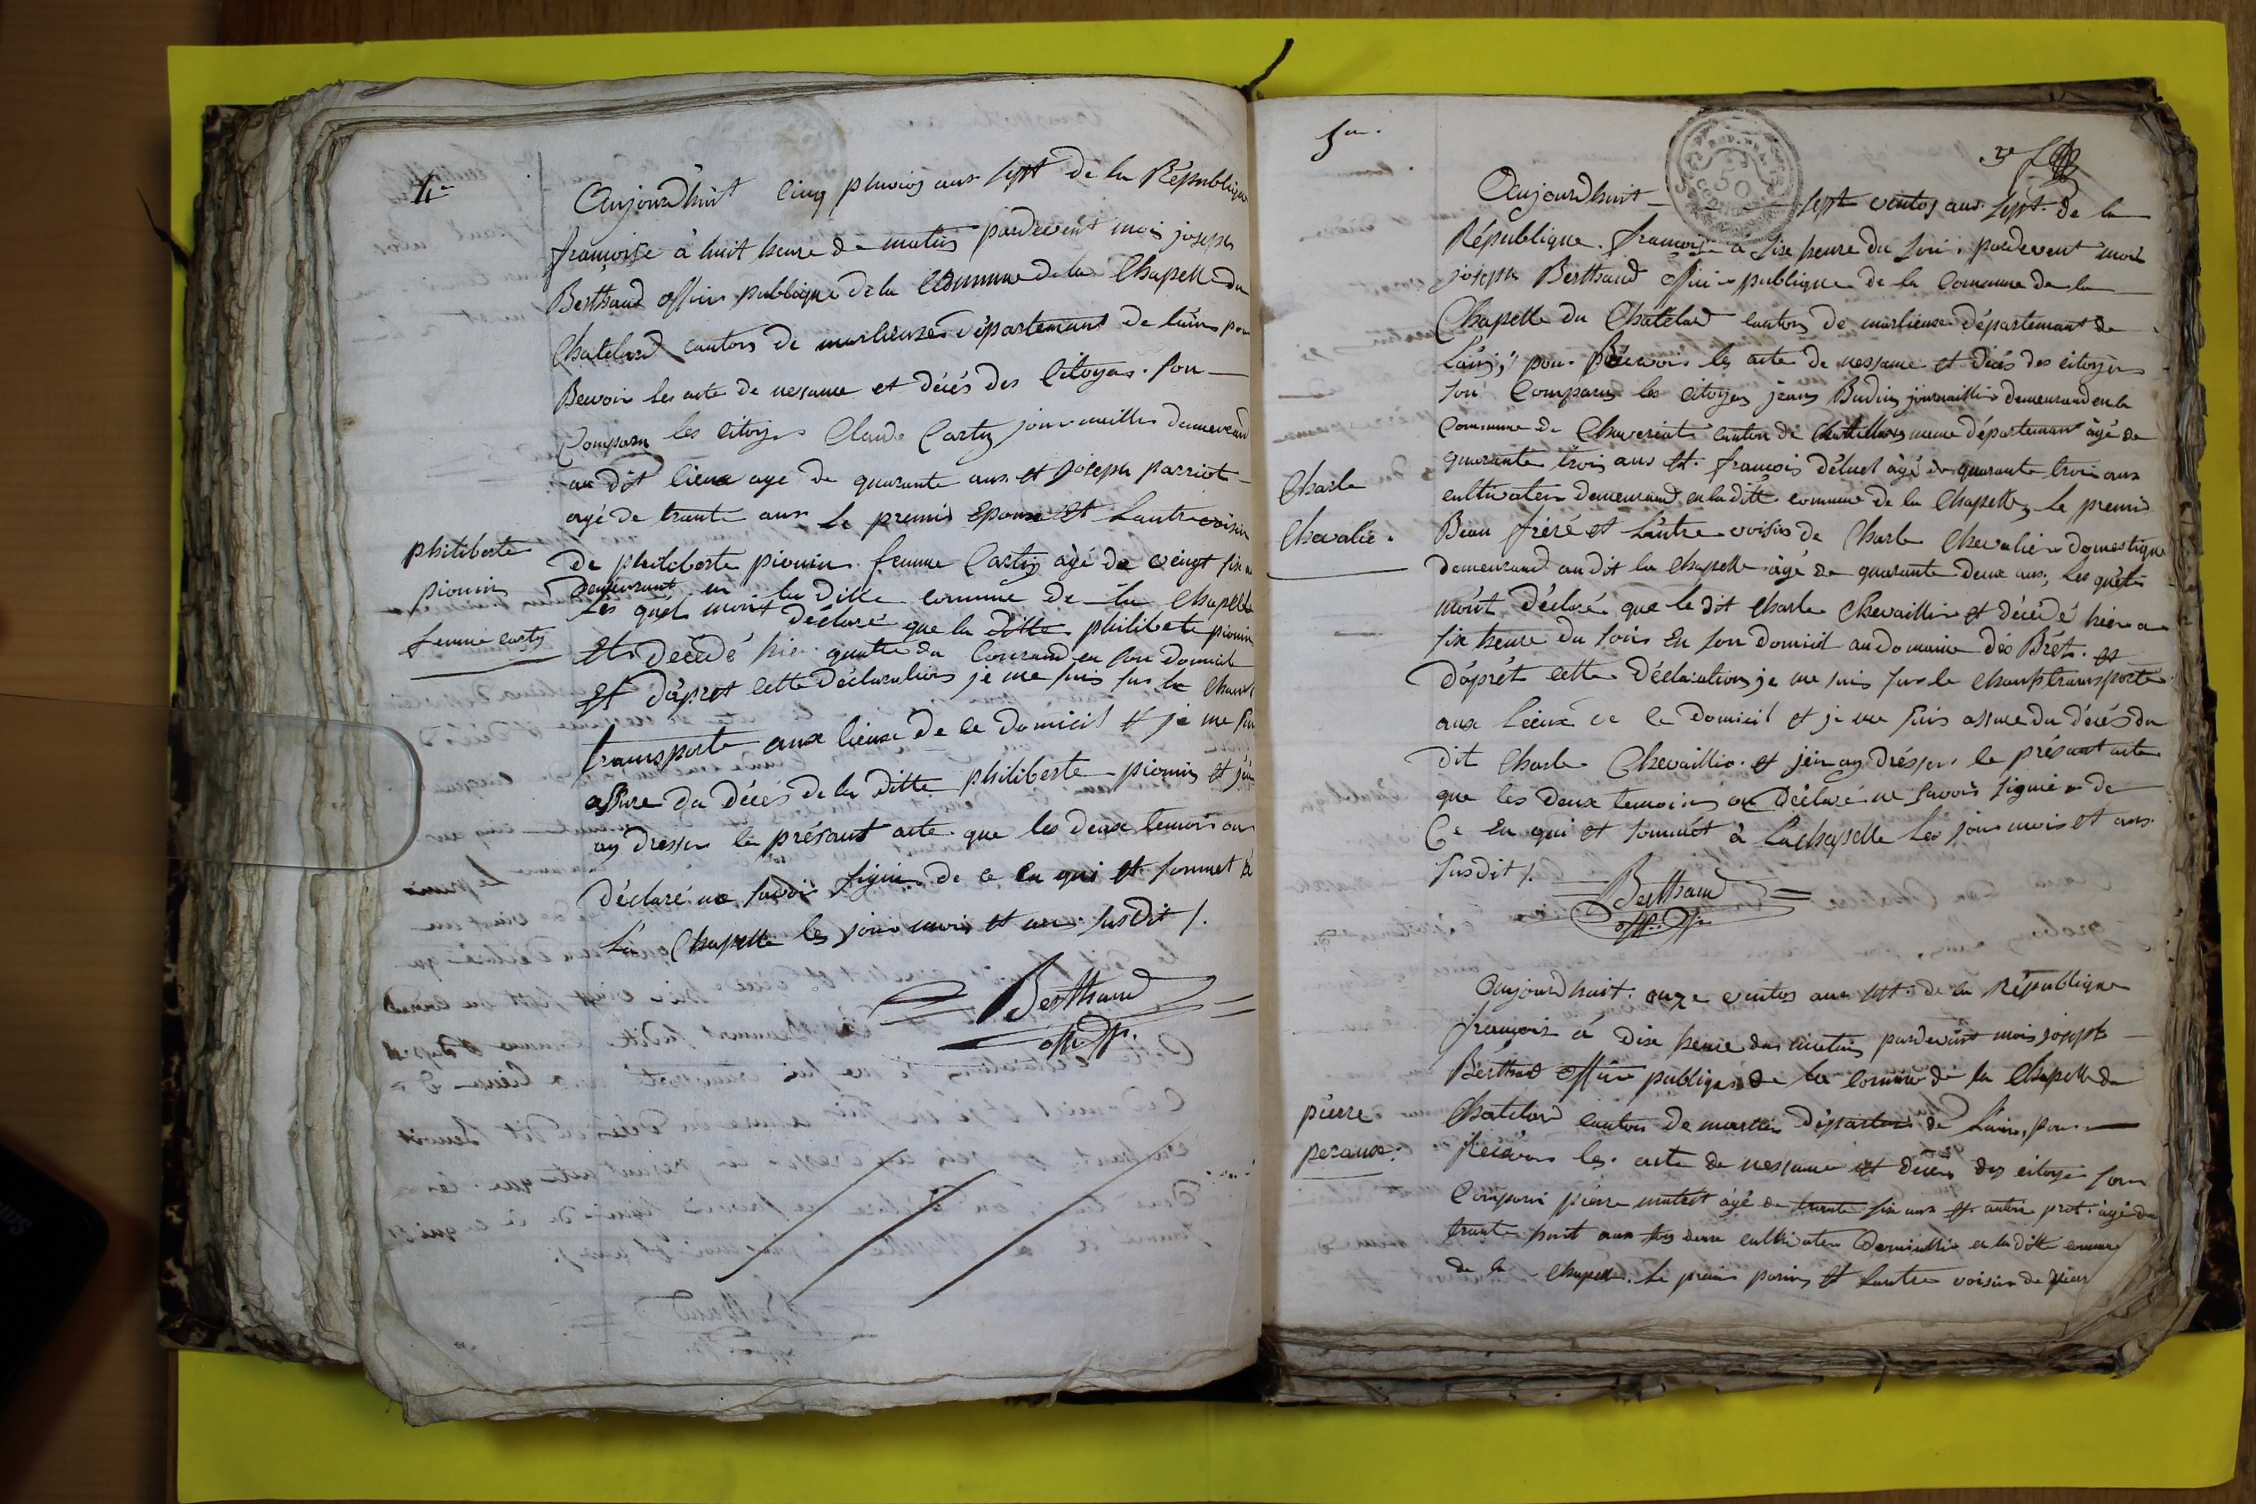 4e
Aujourdhuit cinq pluvios ans sept de la République
françoise à huit heure de matin pardevent mois joseph
Berthaud officier publique de la Commune de la Chapelle du
Chatelard canton de marlieuxe département de lain pour
Recevoir les acte de nessance et décès des Citoyens. son
Comparu les citoyens Claude Carty journaillier demeurand
au dit lieux age de quarante ans et joseph parriot
agé de trante ans le premier Epoux et Lautre voisin
philiberte
pionin
femme carty
De philiberte pionin femme Carty âgé de veingt six
demeurant en la Ditte commune de la Chapelle
Les quel mont déclaré que la ditte philiberte pionin
et décédé hier quatre du Courand en son domicile
et dâpret cette Déclaration je me suis sur le champ
transporte aux lieux de ce Domicil et je me suis
assure du décés de la ditte philiberte pionin et jén
ay dresser le présant acte que les deux temoin on
déclaré ne savoir signie de ce En qui et sonmet à
La Chapelle les jour mois et ans susdit /.
Berthaud
off. p.
5e
Aujourdhuit sept ventos ans sept de la
République françoise a six heure du soir pardevent mois
joseph Berthaud officier publique de la Commune de la
Chapelle du Chatelard canton de marlieuxe département de
Lain, pour Recevoir les acte de nessance et décès des citoyens
son Comparu les citoyens jean Budin journaillier demeurand en la
Commune de Chaveriat canton de Chatillon meme département âgé de
quarante trois ans et françois déluel âgé de quarante trois ans
Charle
Chevalie.
cultivateur demeurand en la ditte commune de la Chapelle, le premier
Beau frére et Lautre voisin de Charle Chevalier domestique
demeurand au dit la Chapelle âgé de quarante deux ans, Les quels
mont déclaré que le dit Charle Chevaillier et décédé hier a
six heure du soir En son domicil au domaine dés Brét. et
dâprét cette Déclaration je me suis sur le champ transporte
aux Lieux de ce Domicil et je me suis assure du décés du
dit Charle Chevaillier et jein ay drésser le présant acte
que les deux temoins on Déclaré ne savoir signié de
Ce En qui et sonmét à Lachapelle Les jour mois et ans
susdit /.
Berthaud
off. p.
Aujourdhuit onze ventos ans sept de la République
françoise à dix heure du matin pardevent mois joseph
Berthaud officier publique de la Commune de la Chapelle du
pierre
peraux.
Chatelard canton de marlieu département de Lain, pour
Recevoir les acte de nessance et décés des citoyen son
Comparu pierre mulet âgé de trante six ans et antoine prot âgé de
trante huit ans tous deux cultivateur demeurant en la ditte commune
de la chapelle. le premier parin et Lautre voisin de pierre